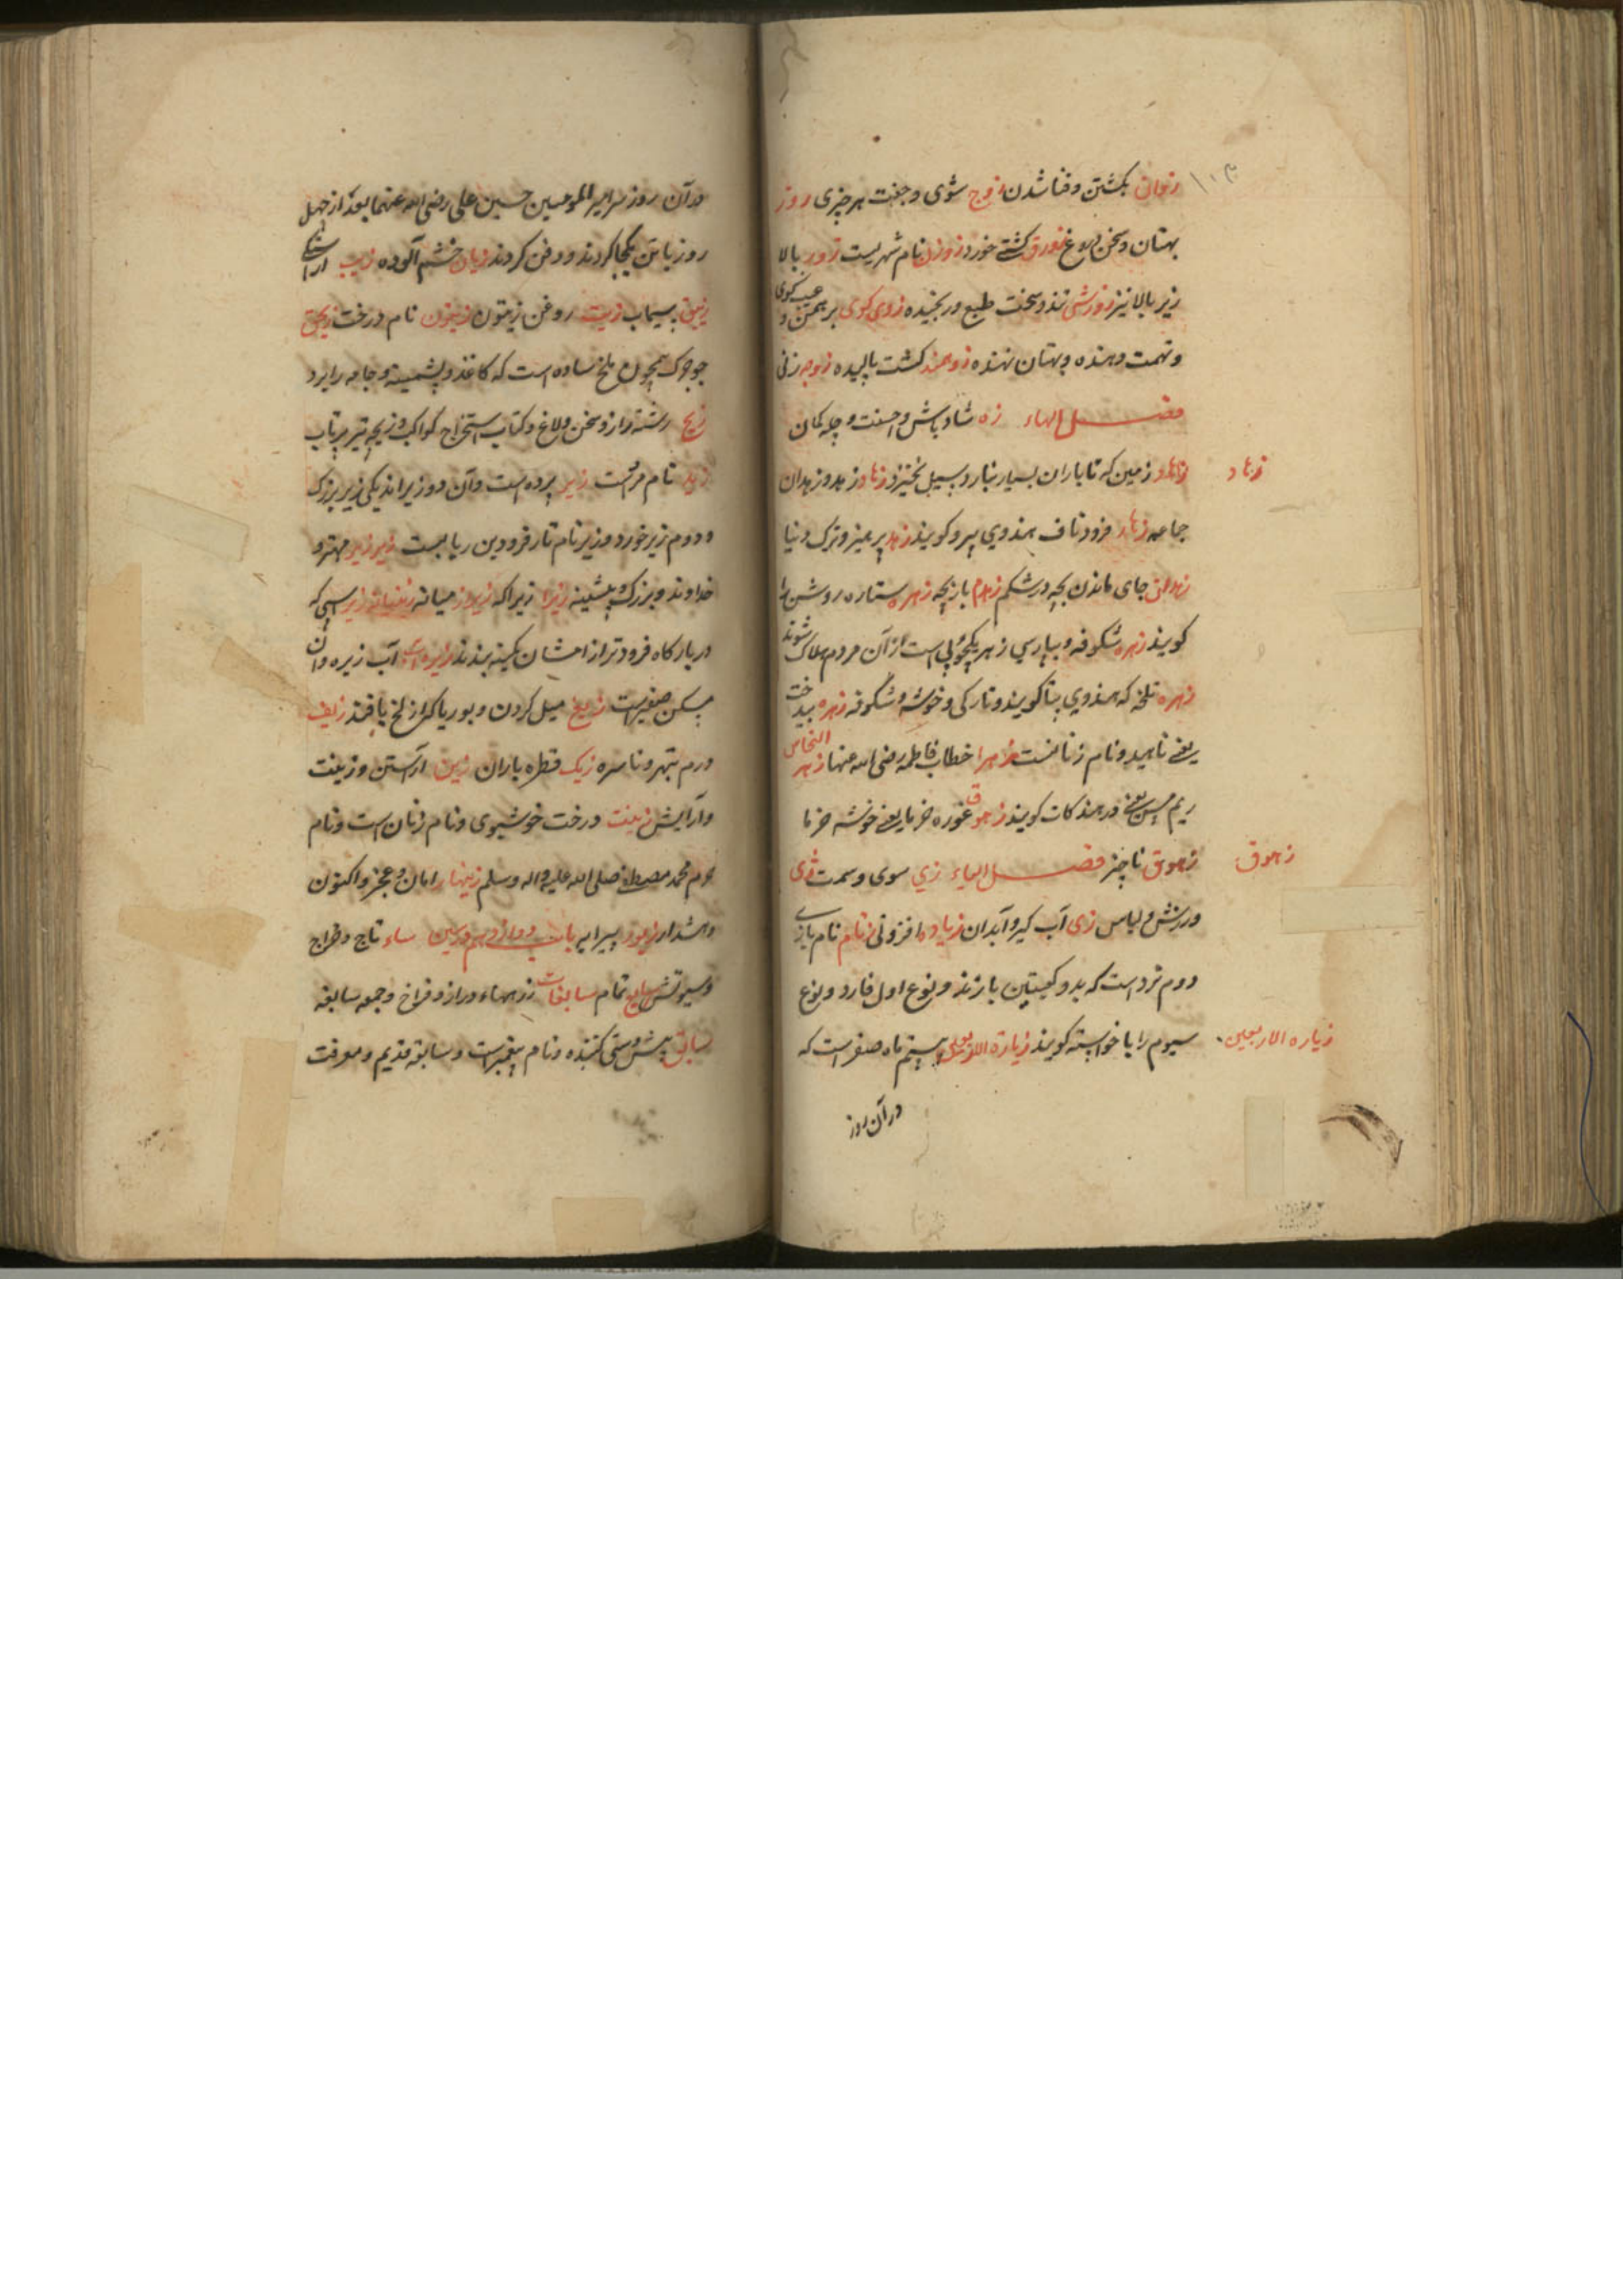 ۱۰۳
زوان بکشتن و فنا شدن زوج شوی و جفت هر چیزی زور
بهتان و سخن دروغ زورق کشتے خورد زوزن نام شهریست زور بالا
زیر بالا نیز زوش تند و سخت طبع و رنجیده زوی کوی برهمن و عیب کوی
و تهمت دهنده و بهتان نهنده زوهمند کشت بالیده زوجه زنی
فصل الهاء زه شاد باش و احسنت و چله کمان
زهاد زمین که تا باران بسیار نبارد سیل نخیزد زهاد زهد و زهدان
زهاد
جماعه زهار فرود ناف هندوی پیرو کویند زهد پرهیز و ترک دنیا
زهدان جای ماندن بچه در شکم زهدم باز بچه زهره ستاره روشن را
کویند زهره شکوفه و بپارسی زهر است از آن مردم هلاک شوند
زهره تلخه که هندوی پتا کویند و تارکی و خوشه و شکوفه زهره بیدخت
یعنے ناهید و نام زنانست زهرا خطاب فاطمه رضی الله عنها زهر النحاس
ریم مس یعنے در هند کات کویند زهو غوره خرما یعنے خوشه خرما
زهوق ناچیز فصل الیاء زی سوی و سمت زی
زهوق
ورزش و لباس زی آب کیر و آبدان زیاده افزونی زیام نام بازی
دوم نرد است که بدو کعبتین بازند و نوع اول فارد و نوع
سیوم را یا خواسته کویند زیارة الاربعین بیستم ماه صفر است که
زیاره الاربعین
در آن روز
در آن روز سر امیر المومنین حسین علی رضی الله عنهما بعد از چهل
روز با تن یکجا کردند و دفن کردند زیان خشم آلوده زیب اراستکی
زیبق سیماب زیت روغن زیتون زیتون نام درخت زیحق
جوجرک همچون ملخ ساده است که کاغذ و پشمینه و جامه را برد
زیج رشته دراز و سخن و لاغ و کتاب استخراج کواکب و زیچه تیر پرتاب
زید نام مردست زیر پرده است و آن دو زیر اند یکی زیر بزرک
و دوم زیر خورد و زیر نام تار فرودین ربابست زیر زبر مهتر و
خداوند و بزرک و پیشینه زیرا زیراکه زیرانداز میانه اسپی که
در بارکاه فرودتر از امشان کمینه بندند زیره آب زیره وان
مسکن صغیرست زیغ میل کردن و بوریا که از لخ بافند زیف
درم نبهره و ناسره زیک قطره باران زین اراستن و زینت
و آرایش زینت درخت خوشبوی و نام زنان است و نام
حرم محمد مصطفے صلی الله علیه و اله وسلم زینهار امان و عجز و اکنون
و هشدار زیور پیرایه باب دوازدهم در سین ساء تاج و خراج
و سیوتش سابغ تمام سابغات زرههاء دراز و فراخ و جمع سابغه
سابق پیش دستی کننده و نام پیغمبرست و سابقه قدیم و معرفت